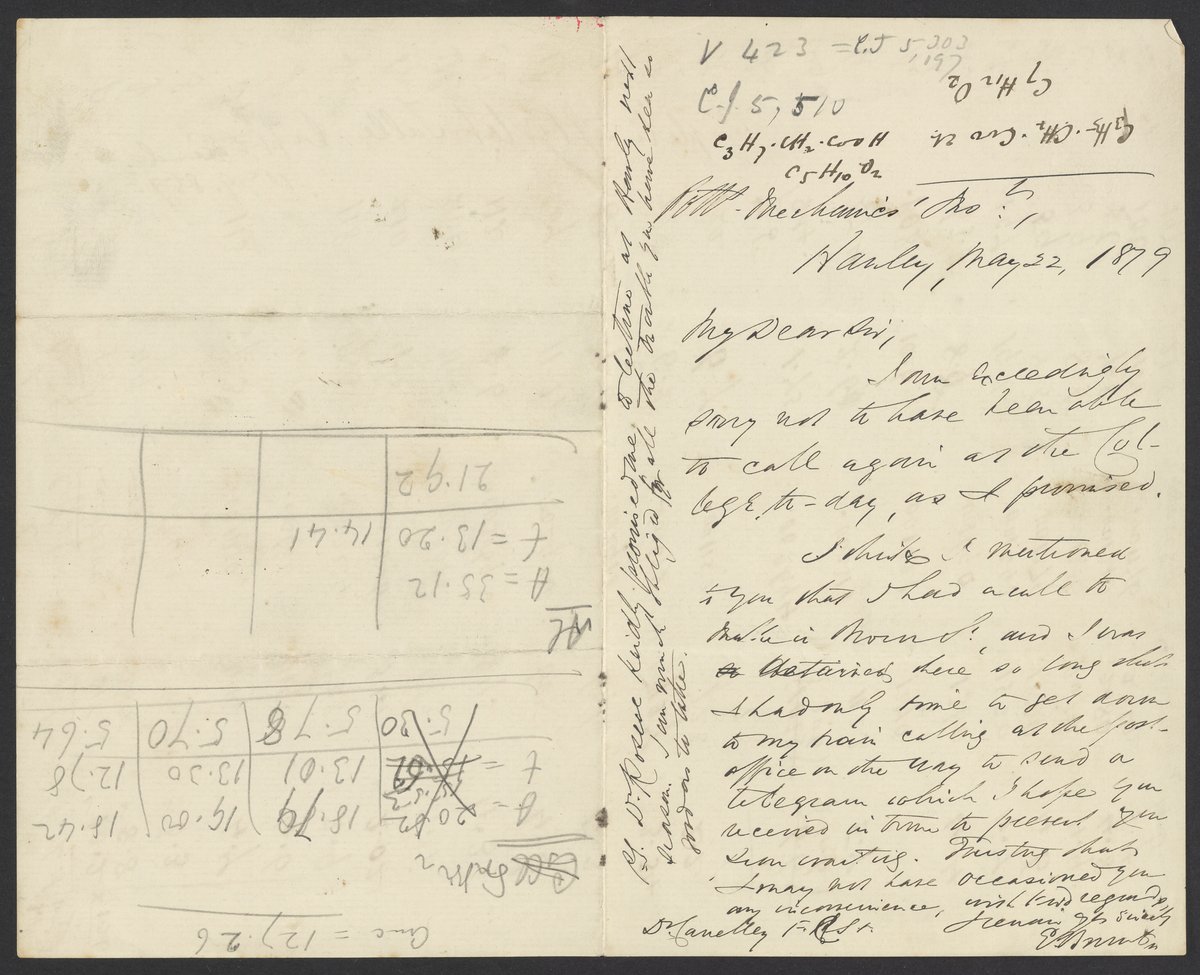 V 423 = C.J 5,303
,197
C.J. 5, 510
C7 H12 O2
C3 H7 · CH2 · COOH
C5 H10 O2
Mechanics'
Hanley, May 22, 1879
My Dear Sir,
I am exceedingly
sorry not to have been able
to call again at the Col-
lege, to-day, as I promised.
I think I mentioned
to you that I had a call to
make in and I was
detained there so long that
I had only time to get down
to my train calling at the post-
office on the way to send a
telegram which I hope you
received in time to prevent you
from waiting. Trusting that
I may not have occasioned you
any inconvenience, with kind regards,
I remain yrs sincerely
Dr Carnelley F.C.S.
P.S. Dr Roscoe kindly promised me to lecture at Hanley next
season. I am much obliged for all the trouble you have been so
good as to take.
= 127.26
A = 20.82 | 18.79 | 19.00 | 18.42
t = 13.01 | 13.30 | 12.78
5.30 | 5.78 | 5.70 | 5.64
A = 35.12
t = 13.20 | 14.41
21.92